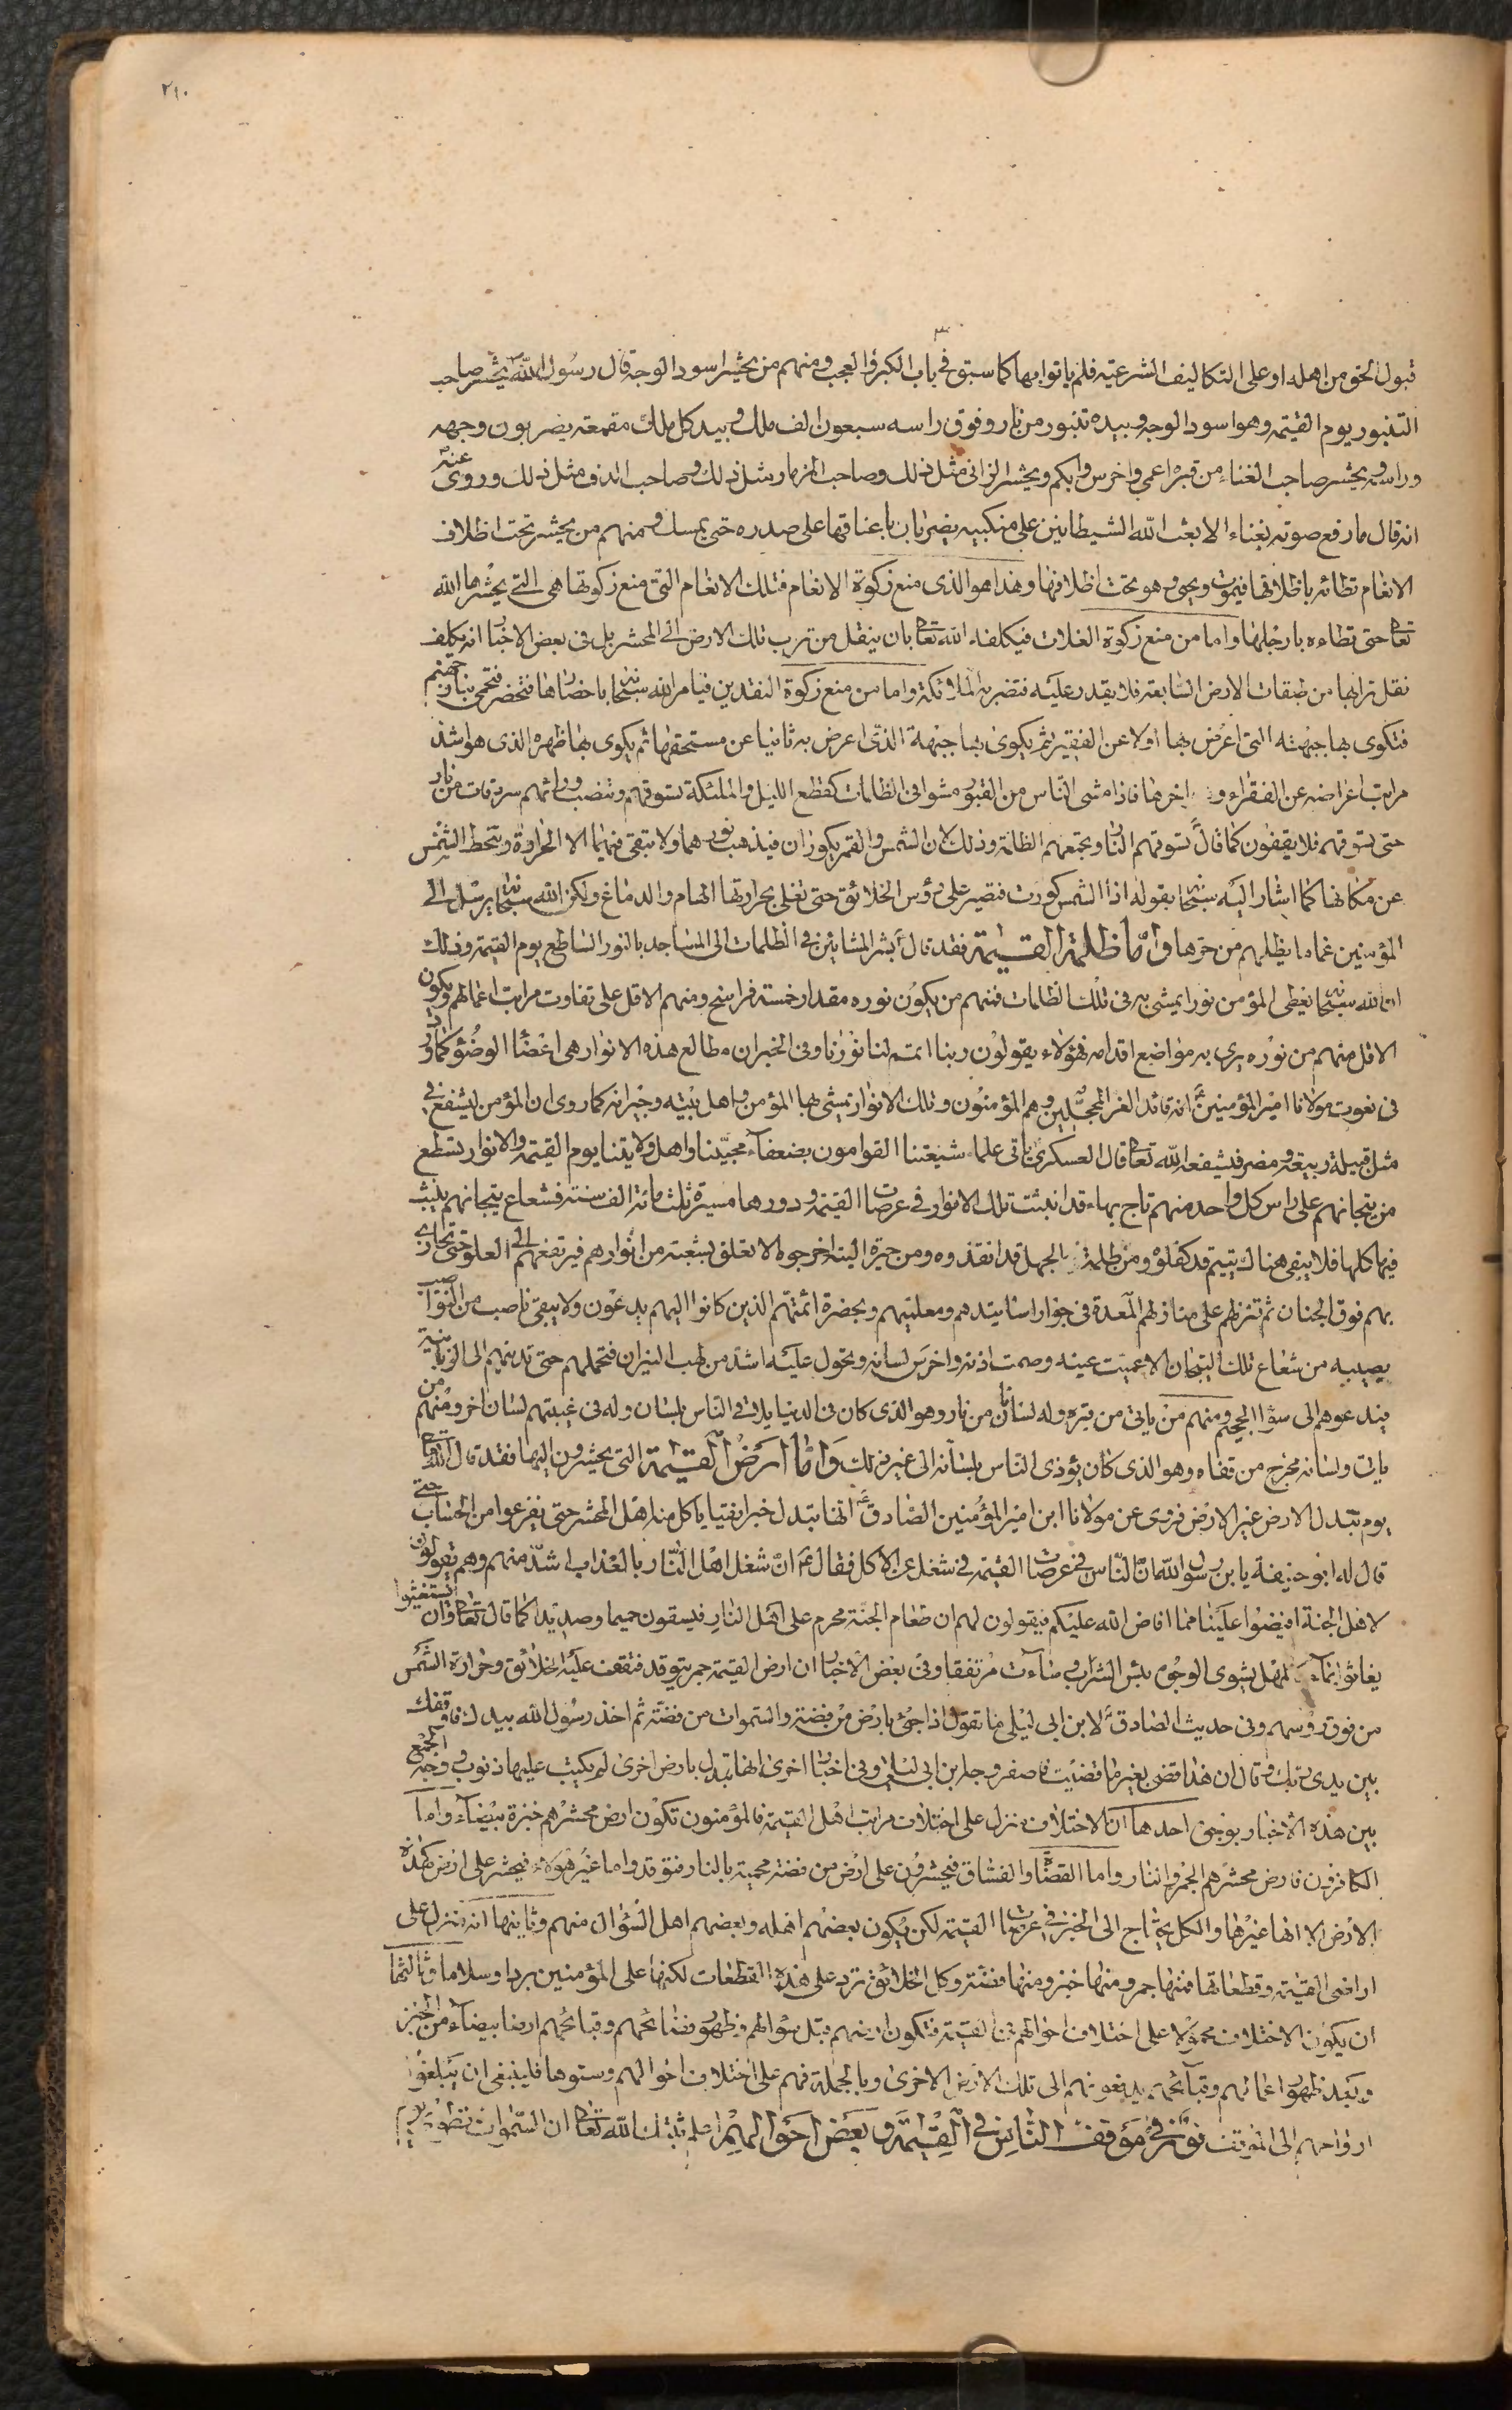 ٢١٠
قبول الحق من اهله او على التكاليف الشرعية فلم ياتوا بها كما سبق في باب الكبر والعجب ومنهم من يحشر اسود الوجه قال رسول الله ص يحشر صاحب
الطنبور يوم القيمة وهو اسود الوجه وبيده طنبور من نار وفوق راسه سبعون الف ملك وبيد كل ملك مقمعة يضربون وجهه
وراسه ويحشر صاحب الغناء من قبره اعمى واخرس وابكم ويحشر الزاني مثل ذلك وصاحب المزمار مثل ذلك وصاحب الدف مثل ذلك وروى عنه ص
انه قال ما رفع صوته بغناء الا بعث الله الشيطانين على منكبيه يضربان باعناقهما على صدره حتى يمسك ومنهم من يحشر تحت اظلاف
الانعام تطائه باظلافها فيموت ويحيى وهو تحت اظلافها وهذا هو الذى منع زكوة الانعام فتلك الانعام التى منع زكوتها هى التي يحشرها الله
تعا حتى تطاءه بارجلها واما من منع زكوة الغلات فيكلفه الله تعا بان ينقل من ترب تلك الارض الى المحشر بل في بعض الاخبار انه يكلف
نقل ترابها من طبقات الارض السابعة فلا يقدر عليه فتضربه الملائكة واما من منع زكوة النقدين فيامر الله سبحانه باحضارها فتحضر فتحمى بنار جهنم
فتكوى بها جبهته التى اعرض بها اولا عن الفقير ثم يكوى بها جبهة الذى اعرض به ثانيا عن مستحقها ثم يكوى بها ظهره الذى هو اشد
مراتب اعراضه عن الفقراء و اخرها فاذا مشى الناس من القبور مشوا في الظلمات كقطع الليل والملئكة تسوقهم وتنصب ورائهم سردقات من نار
حتى تسوقهم فلا يقفون كما قال تسوقهم النار وتجمعهم الظلمة وذلك لان الشمس والقمر يكوران فيذهب نورهما ولا تبقى فيهما الا الحرارة وتحط الشمس
عن مكانها كما اشار اليه سبحانه بقوله اذا الشمس كورت فتصير على رؤس الخلائق حتى تغلى بحرارتها الهام والدماغ ولكن الله سبحانه يرسل الى
المؤمنين غماما يظلهم من حرها واما ظلمة القيمة فقد قال بشر المشائين في الظلمات الى المساجد بالنور الساطع يوم القيمة وذلك
ان الله سبحانه يعطى المؤمن نورا يمشى به في تلك الظلمات فمنهم من يكون نوره مقدار خمسة فراسخ ومنهم الاقل على تفاوت مراتب اعمالهم ويكون
الاقل منهم من نوره يرى به مواضع اقدامه فهؤلاء يقولون ربنا اتمم لنا نورنا وفي الخبر ان مطالع هذه الانوار هى اعضاء الوضوء كما ورد
في نعوت مولانا امير المؤمنين انه قائد الغر المحجلين وهم المؤمنون وتلك الانوار يمشى بها المؤمن واهل بيته وجيرانه كما روى ان المؤمن ليشفع في
مثل قبيلة ربيعة ومضر فيشفعه الله تعا قال العسكرى ياتى علماء شيعتنا القوامون بضعفاء محبينا واهل ولايتنا يوم القيمة والانوار تسطع
من تيجانهم على راس كل واحد منهم تاج بهاء قد انبثت تلك الانوار في عرصات القيمة ودورها مسيرة ثلث مائة الف سنة فشعاع تيجانهم ينبث
فيها كلها فلا يبقى هناك يتيم قد كفلوه ومن ظلمة الجهل قد انقذوه ومن حيرة التيه اخرجوه الا تعلق بشعبة من انوارهم فيرتفعهم الى العلو حتى تحاذى
بهم فوق الجنان ثم تنزلهم على منازلهم المعدة في جوار اساتيدهم ومعلميهم وبحضرة ائمتهم الذين كانوا اليهم يدعون ولا يبقى ناصب من النواصب
يصيبه من شعاع تلك التيجان الا عميت عينه وصمت اذنه واخرس لسانه وتحول عليه اشد من لهب النيران فتحملهم حتى تدنيهم الى الزبانية
فيدعوهم الى سواء الجحيم ومنهم من ياتى من قبره وله لسانان من نار وهو الذى كان في الدنيا يلاقى الناس بلسان وله في غيبتهم لسان اخر ومنهم من
يات ولسانه مخرج من قفاه وهو الذى كان يؤذى الناس بلسانه الى غير ذلك واما ارض القيمة التى يحشرون اليها فقد قال الله تعا
يوم تبدل الارض غير الارض فروى عن مولانا ابن امير المؤمنين الصادق ع انها تبدل خبزا نقيا ياكل منه اهل المحشر حتى يفرغوا من الحساب حتى
قال له ابو حنيفة يا بن رسول الله ان الناس في عرصات القيمة في شغل عن الاكل فقال ع ان شغل اهل النار بالعذاب اشد منهم وهم يقولون
لاهل الجنة افيضوا علينا مما افاض الله عليكم فيقولون لهم ان طعام الجنة محرم على اهل النار فيسقون حميما وصديدا كما قال تعا وان يستغيثوا
يغاثوا بماء كالمهل يشوى الوجوه بئس الشراب وساءت مرتفقا وفي بعض الاخبار ان ارض القيمة جمر يتوقد فتقف عليه الخلائق وحرارة الشمس
من فوق رؤسهم وفي حديث الصادق ع لابن ابى ليلى ما تقول اذا جئ بارض من فضة والسموات من فضة ثم اخذ رسول الله بيدك فاوقفك
بين يدى ربك وقال ان هذا قضى بغير ما قضيت فاصفر وجه ابن ابى ليلى وفي اخبار اخرى انها تبدل بارض اخرى لم يكتب عليها ذنوب ووجه الجمع
بين هذه الاخبار بوجوه احدها ان الاختلاف منزل على اختلاف مراتب اهل القيمة فالمؤمنون تكون ارض محشرهم خبزة بيضاء واما
الكافرون فارض محشرهم الجمر والنار واما القضاة والفساق فيحشرون على ارض من فضة محمية بالنار فتوقد واما غير هؤلاء فيحشر على ارض كهذه
الارض الا انها غيرها والكل يحتاج الى الخبز في عرصات القيمة لكن يكون بعضهم اهله وبعضهم اهل السؤال منهم وثانيها انه منزل على
اراضى القيمة وقطعاتها فمنها جمر ومنها خبز ومنها فضة وكل الخلائق ترد على هذه القطعات لكنها على المؤمنين بردا وسلاما وثالثها
ان يكون الاختلاف محمولا على اختلاف احوالهم في القيمة فتكون ارضهم قبل سؤالهم وظهور فضائحهم وقبائحهم ارضا بيضاء من الخبز
وبعد ظهور اعمالهم وقبائحهم يدفعونهم الى تلك الارض الاخرى وبالجملة فهم على اختلاف احوالهم وستوها فلينبغى ان يبلغوا
ارواحهم الى الموقف نور في موقف الناس في القيمة وبعض احوالهم اعلم ثبتك الله تعا ان السموات تطوى